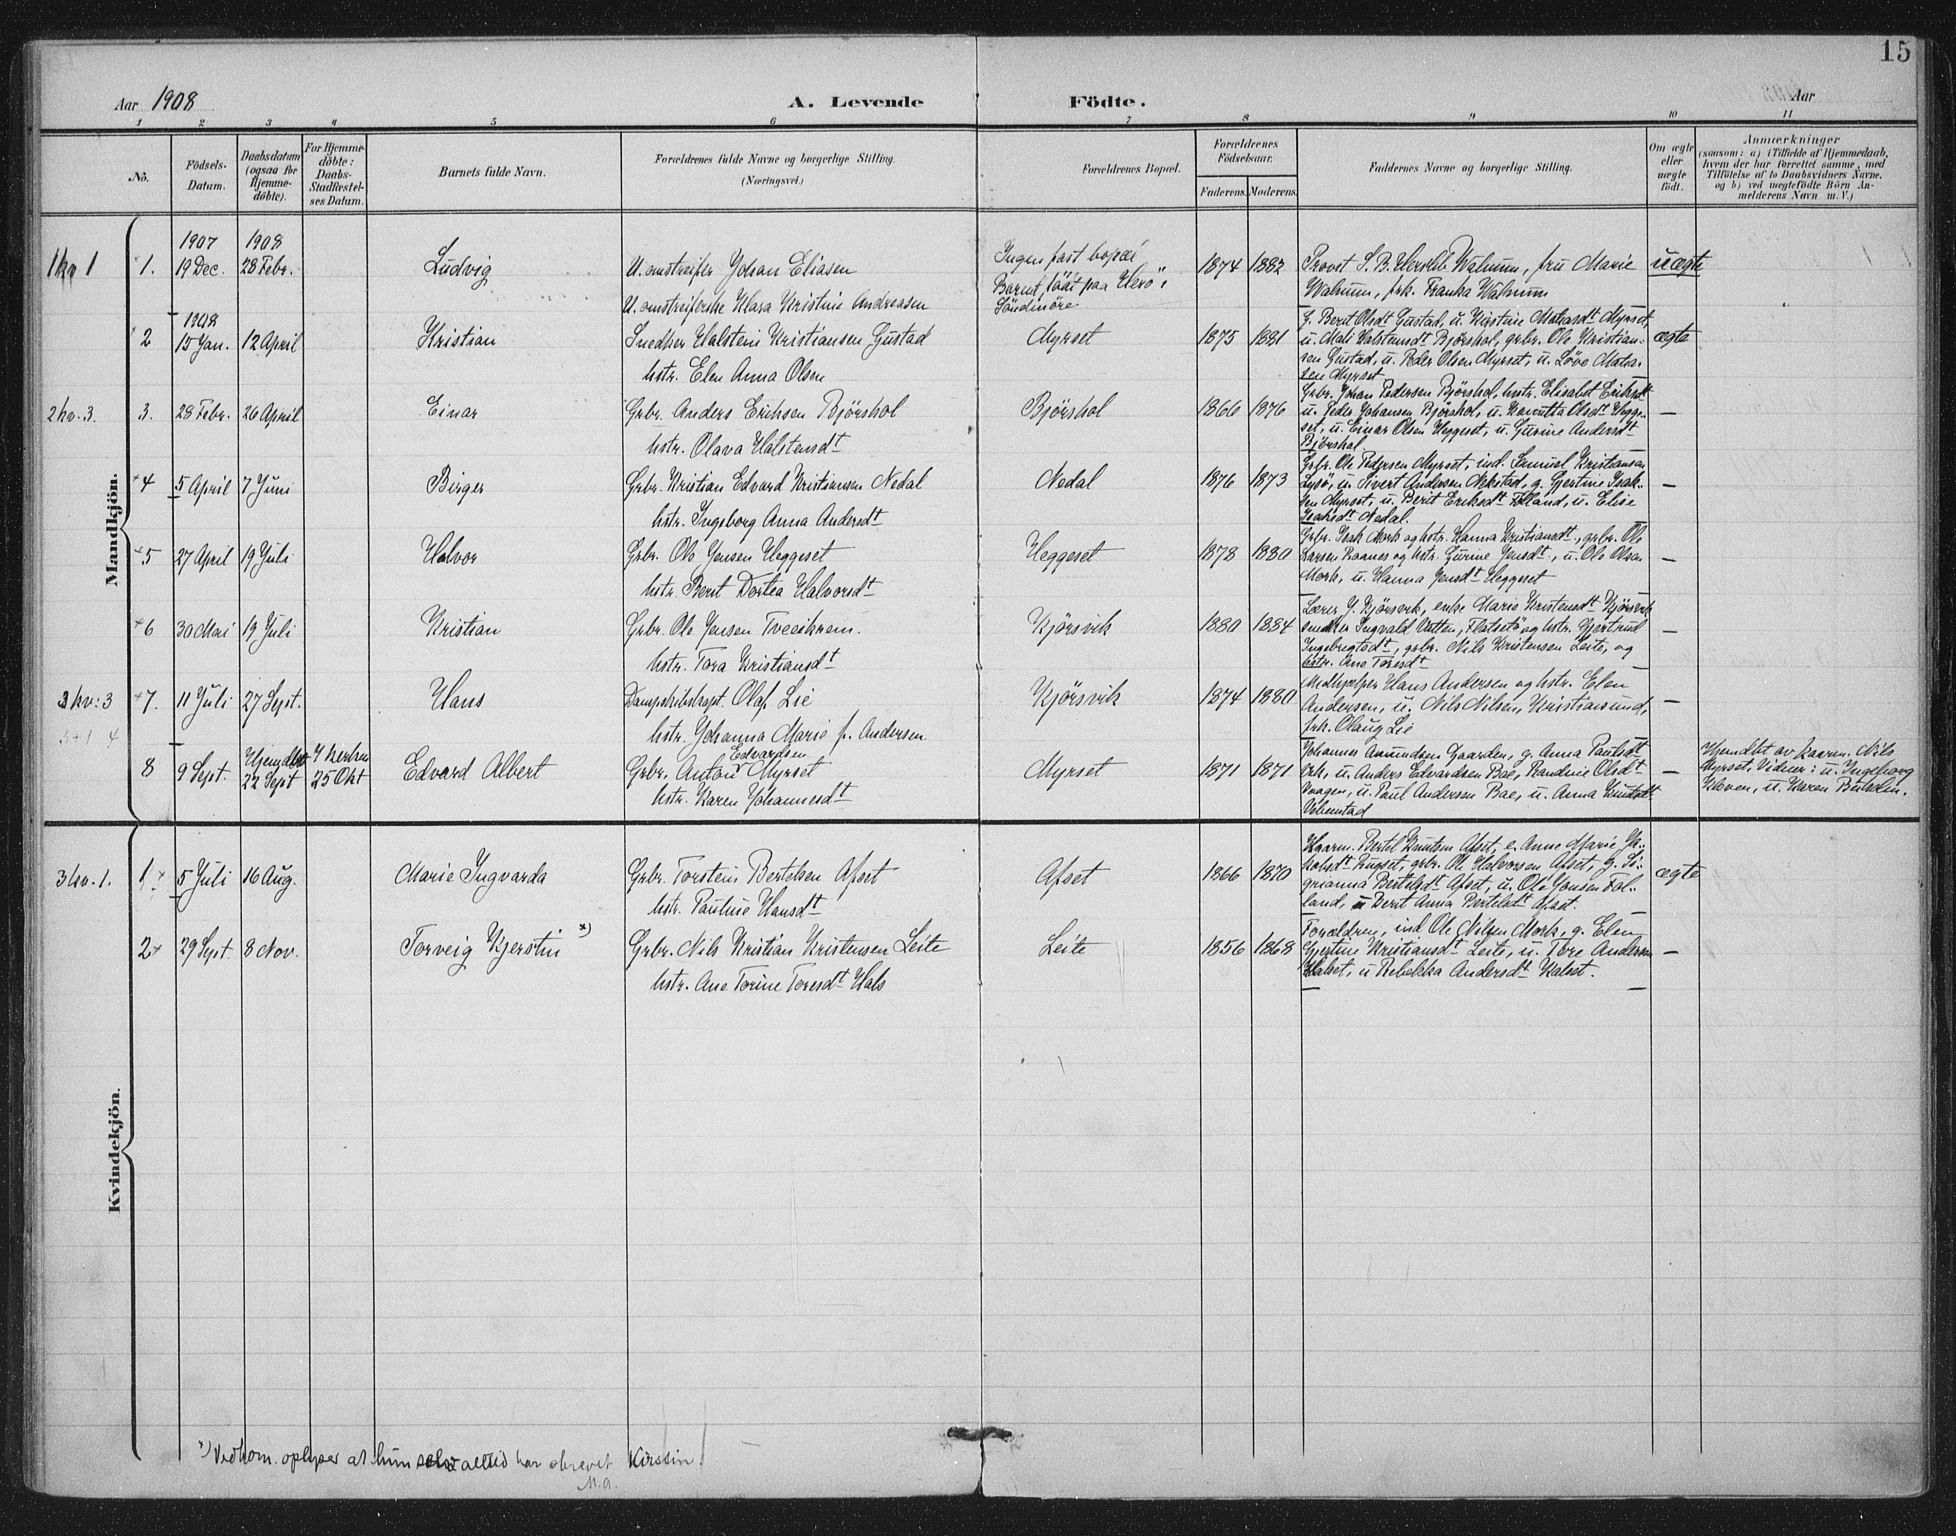 15
Aar 1908 A. Levende Födte. Aar
1 2 3 4 5 6 7 8 9 10 11
No.
Födsels-Datum.
Daabsdatum (ogsaa for Hjemme-döbte).
For Hjemme-döbte: Daabs-Stadfæstel-ses Datum.
Barnets fulde Navn.
Forældrenes fulde Navne og borgerlige Stilling.
(Næringsvei.)
Forældrenes Bopæl.
Forældrenes Födselsaar.
Faderens. Moderens.
Faddernes Navne og borgerlige Stilling.
Om ægte eller uægte födt.
Anmærkninger
(saasom: a) i Tilfælde af Hjemmedaab,
hvem der har forrettet samme, med
Tilföielse af to Daabsvidners Navne.
og b) ved uægtefödte Börn An-
melderens Navn m. V.)
Mandkjön.
1 kv 1
1. 1907 19 Dec. 1908 28 Febr. Ludvig
U. omstreifer Johan Eliasen
U. omstreiferske Klara Kristine Andreasen
Ingen fast bopæl
Barnet född paa Herö i
Söndmöre
1874 1882
Provst S. B. Hersleb Walnum, fru Marie
Walnum, frk. Franka Walnum
uægte
2 1908 15 Jan. 12 April Kristian
Snedker Halstein Kristiansen Gustad
hstr. Elen Anna Olsen
Myrset 1875 1881
g. Berit Olsdt Gustad, u. Kirstine Matiasdt Myrset,
u. Mali Halstensdt Bjørshol, grbr. Ole Kristian-
sen Gustad, u. Peder Olsen Myrset, u. Løve Matia-
sen Myrset
ægte
2 kv. 3.
3. 28 Febr. 26 April Einar
Grbr. Anders Erichsen Bjørshol
hstr. Olava Halstensdt
Bjørshol 1866 1876
Grbr. Johan Pedersen Bjørshol, hstr. Elisabet Eriksdt
u. Peder Johansen Bjørshol, u. Olsdt Hegge-
set, u. Einar Olsen Heggeset, u. Gurine Andersdt
Bjørshol
—
4 5 April 7 Juni Birger
Grbr. Kristian Edvard Kristiansen Nedal
hstr. Ingeborg Anna Andersdt
Nedal 1876 1873
Grbr. Ole Pedersen Myrset, ind. Samuel Kristiansen
Lysö, u. Sivert Andersen, g. Gjertine Isak-
sen Myrset, u. Berit Eriksdt Folland, u. Elise
Isaksdt Nedal.
—
5 27 April 19 Juli Halvor
Grbr. Ole Jensen Heggeset
hstr. Berit Dortea Halvorsdt
Heggeset 1878 1880
Grbr. Isak Mork og hstr. Hanna Kristiansdt, grbr. Ole
Larsen Raanes og hstr. Gurine Jensdt, u. Ole Olsen
Mork, u. Hanna Jensdt Heggeset
—
6 30 Mai 19 Juli Kristian
Grbr. Ole Jensen Tveeikrem.
hstr. Tora Kristiansdt
Kjörsvik 1880 1884
Lærer J. Kjörsvik, enke Marie Kristensdt Kjörsvik
snedker Ingvald Vatten, Flatsetö og hstr. Gjertrud
Ingebrigtsdt, grbr. Nils Kristensen Leite, og
hstr. Ane Toresdt
—
3 kv: 3
3+1 4
7. 11 Juli 27 Sept. Hans
Dampskibskapt. Olaf Lie
hstr. Johanna Marie f. Andersen
Kjörsvik 1874 1880
Medhjælper Hans Andersen og hstr. Elen
Andersen, u. Nils Nilsen, Kristiansund,
frk. Olaug Lie
—
8 9 Sept. Hjemdbt 22 Sept I kirken 25 Okt Edvard Albert
Edvardsen
Grbr. Anton Myrset
hstr. Karen Johannesdt
Myrset 1871 1871
Johannes Amundsen Gaarden, g. Anna Paulsdt
Ork, u. Anders Edvardsen Bae, Randine Olsdt
Vaagen, u. Paul Andersen Bae, u. Anna Knutsdt
—
Hjemdbt av Nils
Myrset. Vidner: u. Ingeborg
Kleven, u. Karen Bertelsen.
Kvindekjön.
3 kv. 1.
1 5 Juli 16 Aug. Marie Ingvarda
Grbr. Torstein Bertelsen Afset
hstr. Pauline Hansdt
Afset 1866 1870
Kaarm. Bertel Knutsen Afset, e. Anne Marie Ja-
kobsdt Rugset, grbr. Ole Halvorsen Afset, g. Si-
grianna Bertelsdt Afset, u. Ole Jonsen Fol-
land, u Berit Anna Bertelsdt Afset.
ægte
2 29 Sept 8 Nov. Torveig Kjerstin x)
Grbr. Nils Kristian Kristensen Leite
hstr. Ane Torine Toresdt Hals
Leite 1856 1868
Forældrene, ind Ole Nilsen Mork, g. Elen
Gjertine Kristiansdt Leite, u. Tore Andersen
Halset, u Rebekka Andersdt Halset.
—
x) Vedkom. oplyser at hun selv alltid har skrevet Kirstin.
M.a.